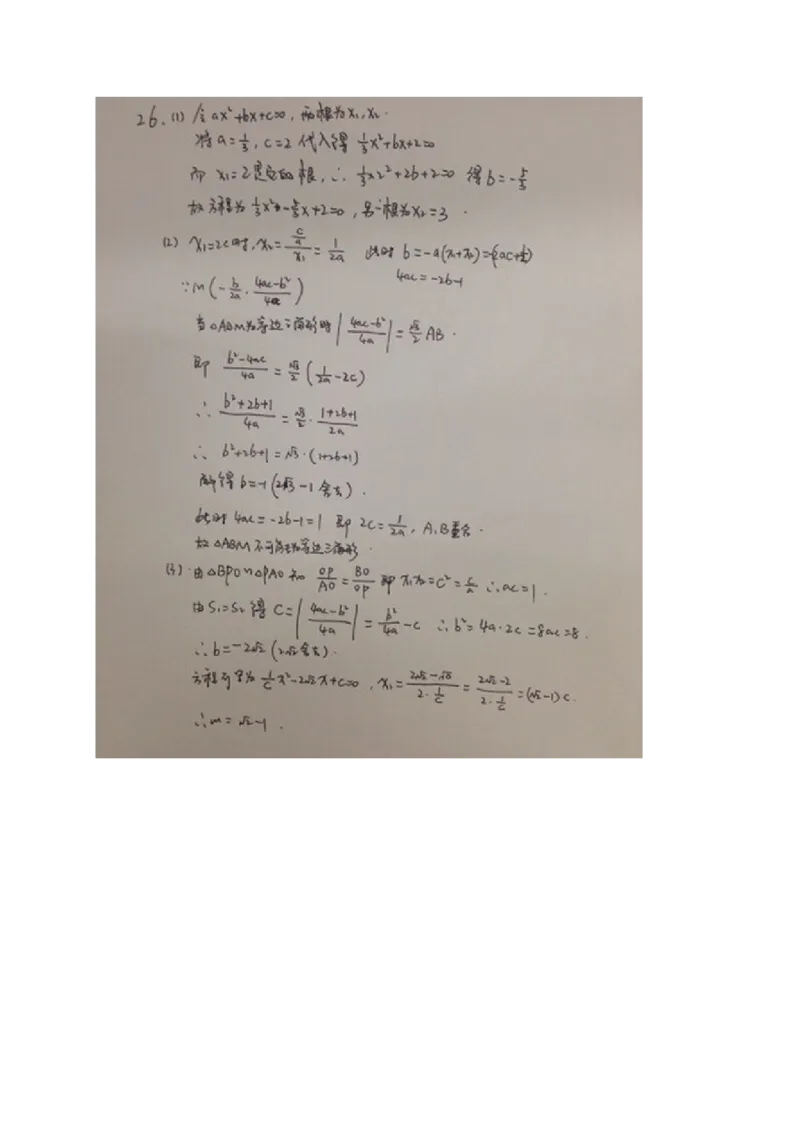 26. (1) 令 ax²+bx+c=0, 两根为x₁,x₂.
将 a=1/3, c=2 代入得 1/3x²+bx+2=0
而 x₁=2是它的根, ∴ 1/3×2²+2b+2=0 得 b=-5/3
故方程为 1/3x²-5/3x+2=0, 另一根为x₂=3.
(2) x₁=2c时, x₂=(c/a)/x₁=1/2a 此时 b=-a(x₁+x₂)=-(2ac+1/2)
4ac=-2b-1
∵M(-b/2a, (4ac-b²)/4a)
当△ABM为等边三角形时 |(4ac-b²)/4a|=√3/2 AB.
即 (b²-4ac)/4a=√3/2(1/2a-2c)
∴ (b²+2b+1)/4a=√3/2·(1+2b+1)/2a
∴ b²+2b+1=√3·(1+2b+1)
解得 b=-1 (2√3-1舍去).
此时 4ac=-2b-1=1 即 2c=1/2a, A、B重合.
故△ABM不可能为等边三角形.
(3) 由△BPO∽△PAO知 OP/AO=BO/OP 即 x₁x₂=c²=c/a ∴ac=1.
由S₁=S₂得 c=|(4ac-b²)/4a|=b²/4a-c ∴b²=4a·2c=8ac=8.
∴b=-2√2 (2√2舍去).
方程可写为 1/c x²-2√2x+c=0, x₁=(2√2-√8)/(2·1/c)=(2√2-2)/(2·1/c)=(√2-1)c.
∴m=√2-1.